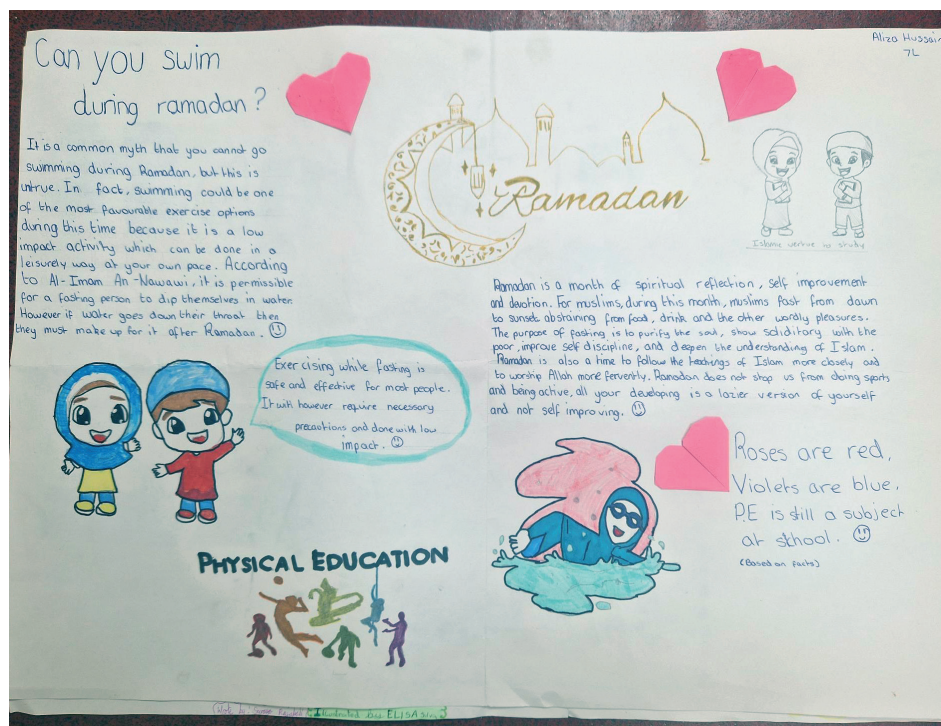 Can you swim
during ramadan?
It is a common myth that you cannot go
swimming during Ramadan, but this is
untrue. In fact, swimming could be one
of the most favourable exercise options
during this time because it is a low
impact activity which can be done in a
leisurely way at your own pace. According
to Al-Imam An-Nawawi, it is permissible
for a fasting person to dip themselves in water.
However if water goes down their throat then
they must make up for it after Ramadan.
Exercising while fasting is
safe and effective for most people.
It will however require necessary
precautions and done with low
impact.
PHYSICAL EDUCATION
Ramadan
Aliza Hussain
7L
Islamic verture is
Ramadan is a month of spiritual reflection, self improvement
and devotion. For muslims, during this month, muslims fast from dawn
to sunset abstaining from food, drink and the other wordly pleasures.
The purpose of fasting is to purify the soul, show soliditory with the
poor, improve self discipline, and deepen the understanding of Islam.
Ramadan is also a time to follow the teachings of Islam more closely and
to worship Allah more fervently. Ramadan does not stop us from doing sports
and being active, all your developing is a lazier version of yourself
and not self improving.
Roses are red,
Violets are blue.
P.E is still a subject
at school.
(Based on facts)
Work by:
Illustrated by: ELISA